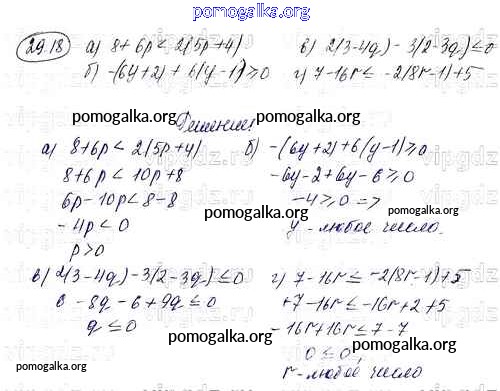 pomogalka.org
29.18 а) 8+6p < 2(5p+4) в) 2(3-4q)-3(2-3q) ≤ 0
б) -(6y+2)+6(y-1) ≥ 0 г) 7-16r ≤ -2(8r-1)+5
pomogalka.org pomogalka.org
Решение:
а) 8+6p < 2(5p+4) б) -(6y+2)+6(y-1) ≥ 0
8+6p < 10p+8 -6y-2+6y-6 ≥ 0
6p-10p < 8-8 -4 ≥ 0 =>
-4p < 0 y - любое число.
p > 0
pomogalka.org pomogalka.org
в) 2(3-4q)-3(2-3q) ≤ 0 г) 7-16r ≤ -2(8r-1)+5
6-8q-6+9q ≤ 0 +7-16r ≤ -16r+2+5
q ≤ 0 -16r+16r ≤ 7-7
0 ≤ 0
r - любое число
pomogalka.org pomogalka.org
pomogalka.org pomogalka.org